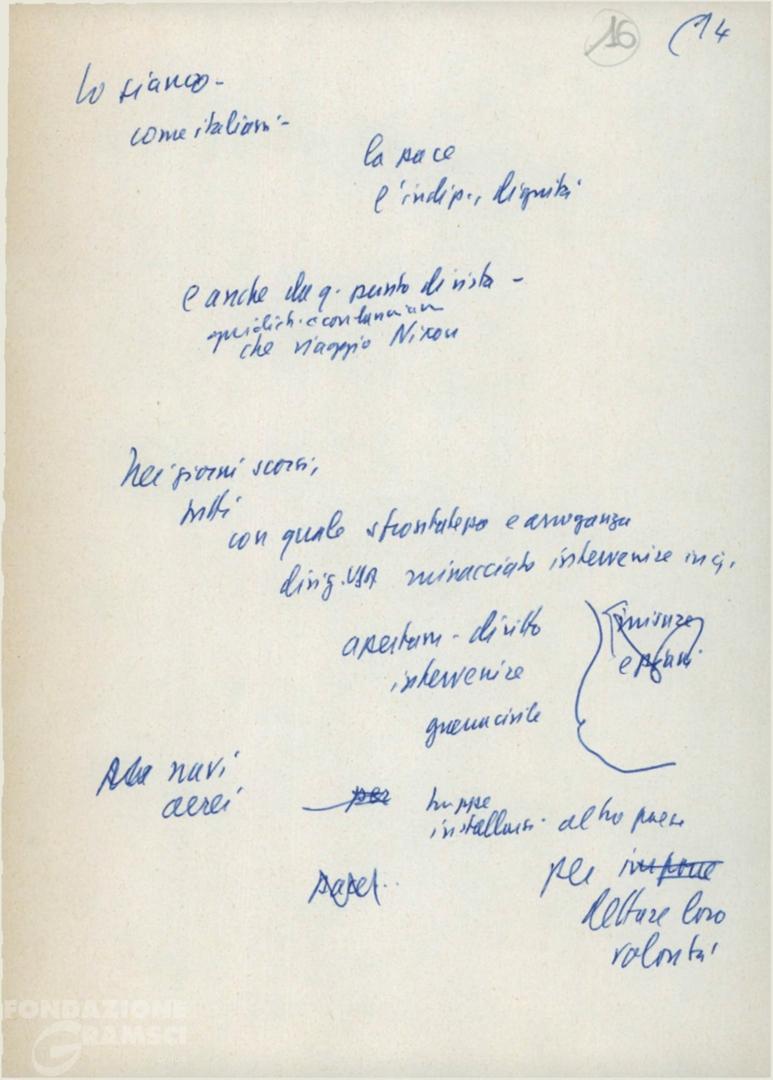 16 14
lo siamo -
come italiani -
la pace
e indip., dignità
e anche da q. punto di vista -
che viaggio Nixon
Nei giorni scorsi,
tutti
con quale sfrontatezza e arroganza
dirig. USA minacciato intervenire in G.
apertam - diritto
intervenire
guerra civile
misure
e piani
navi
aerei
per
truppe
altro paese
per impone
dettare loro
volontà
FONDAZIONE
GRAMSCI